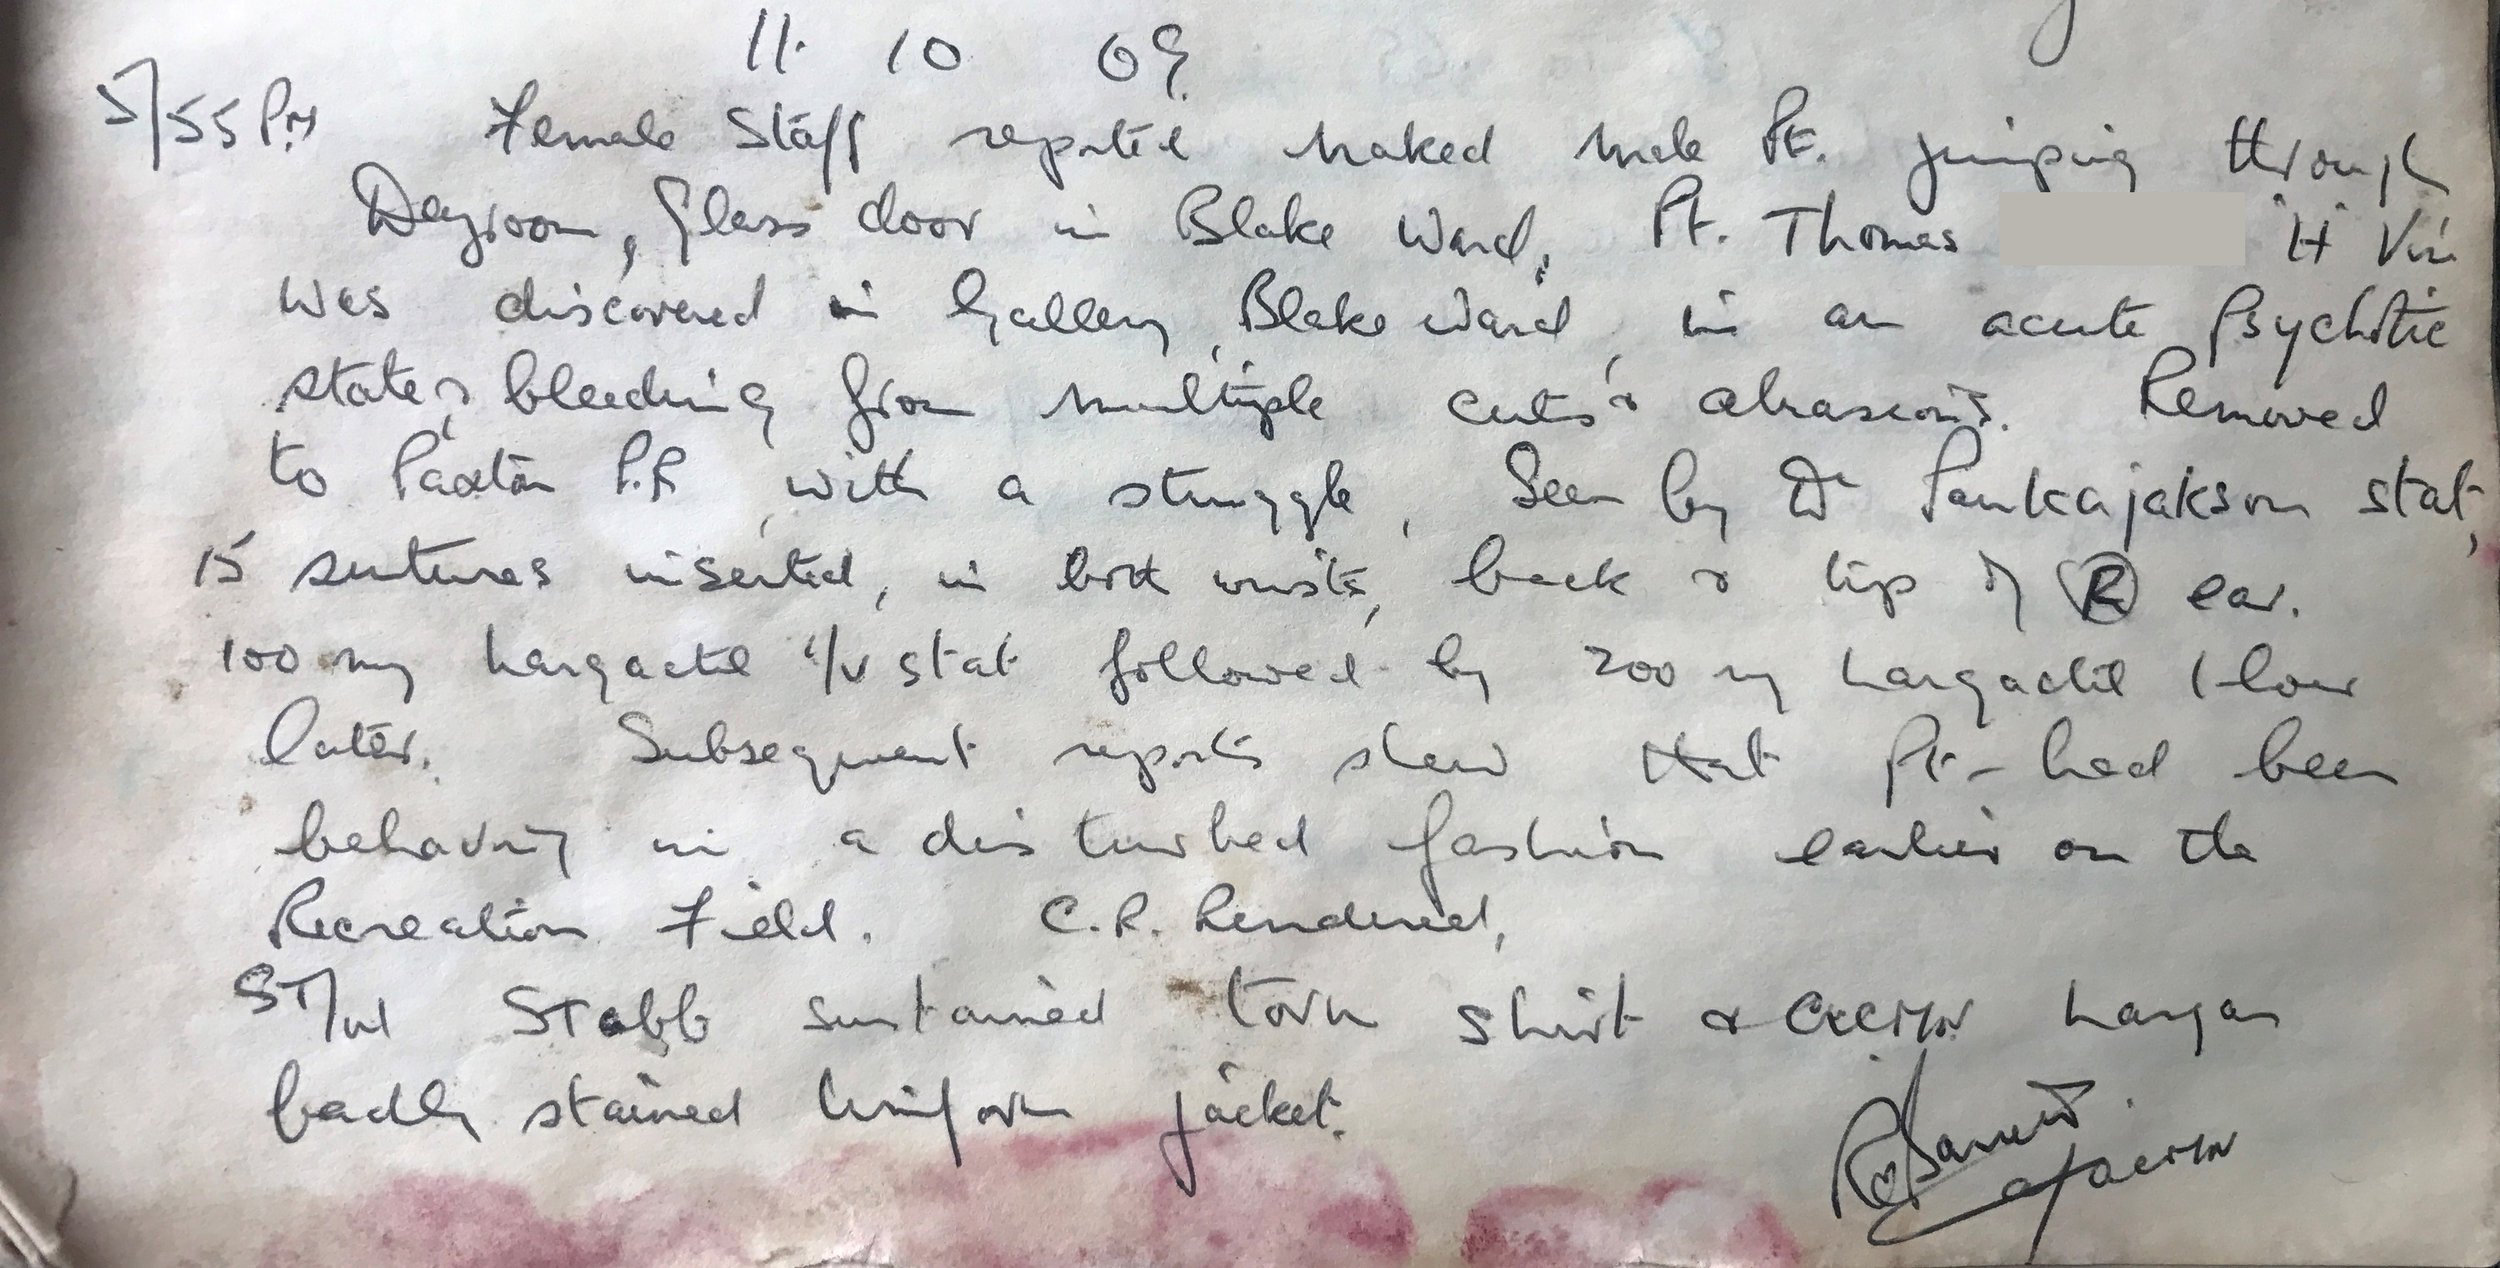 11. 10 69.
5/55 P.M Female Staff reported naked male Pt. jumping through
Dayroom, Glass door in Blake Ward, Pt. Thomas H Vill
was discovered in Gallery, Blake Ward, in an acute Psychotic
state, & bleeding from multiple cuts & abrasions. Removed
to Paxton P.R, with a struggle, Seen by Dr Pankajakson stat,
15 sutures inserted, in both wrists, back & tip of R ear.
100 mg Largactil i/v stat followed by 200 mg Largactil 1 hour
later. Subsequent reports show that Pt - had been
behaving in a disturbed fashion earlier on the
Recreation Field. C.R. Rendered,
ST/N Stabb sustained torn shirt & Langan
badly stained Uniform jacket.